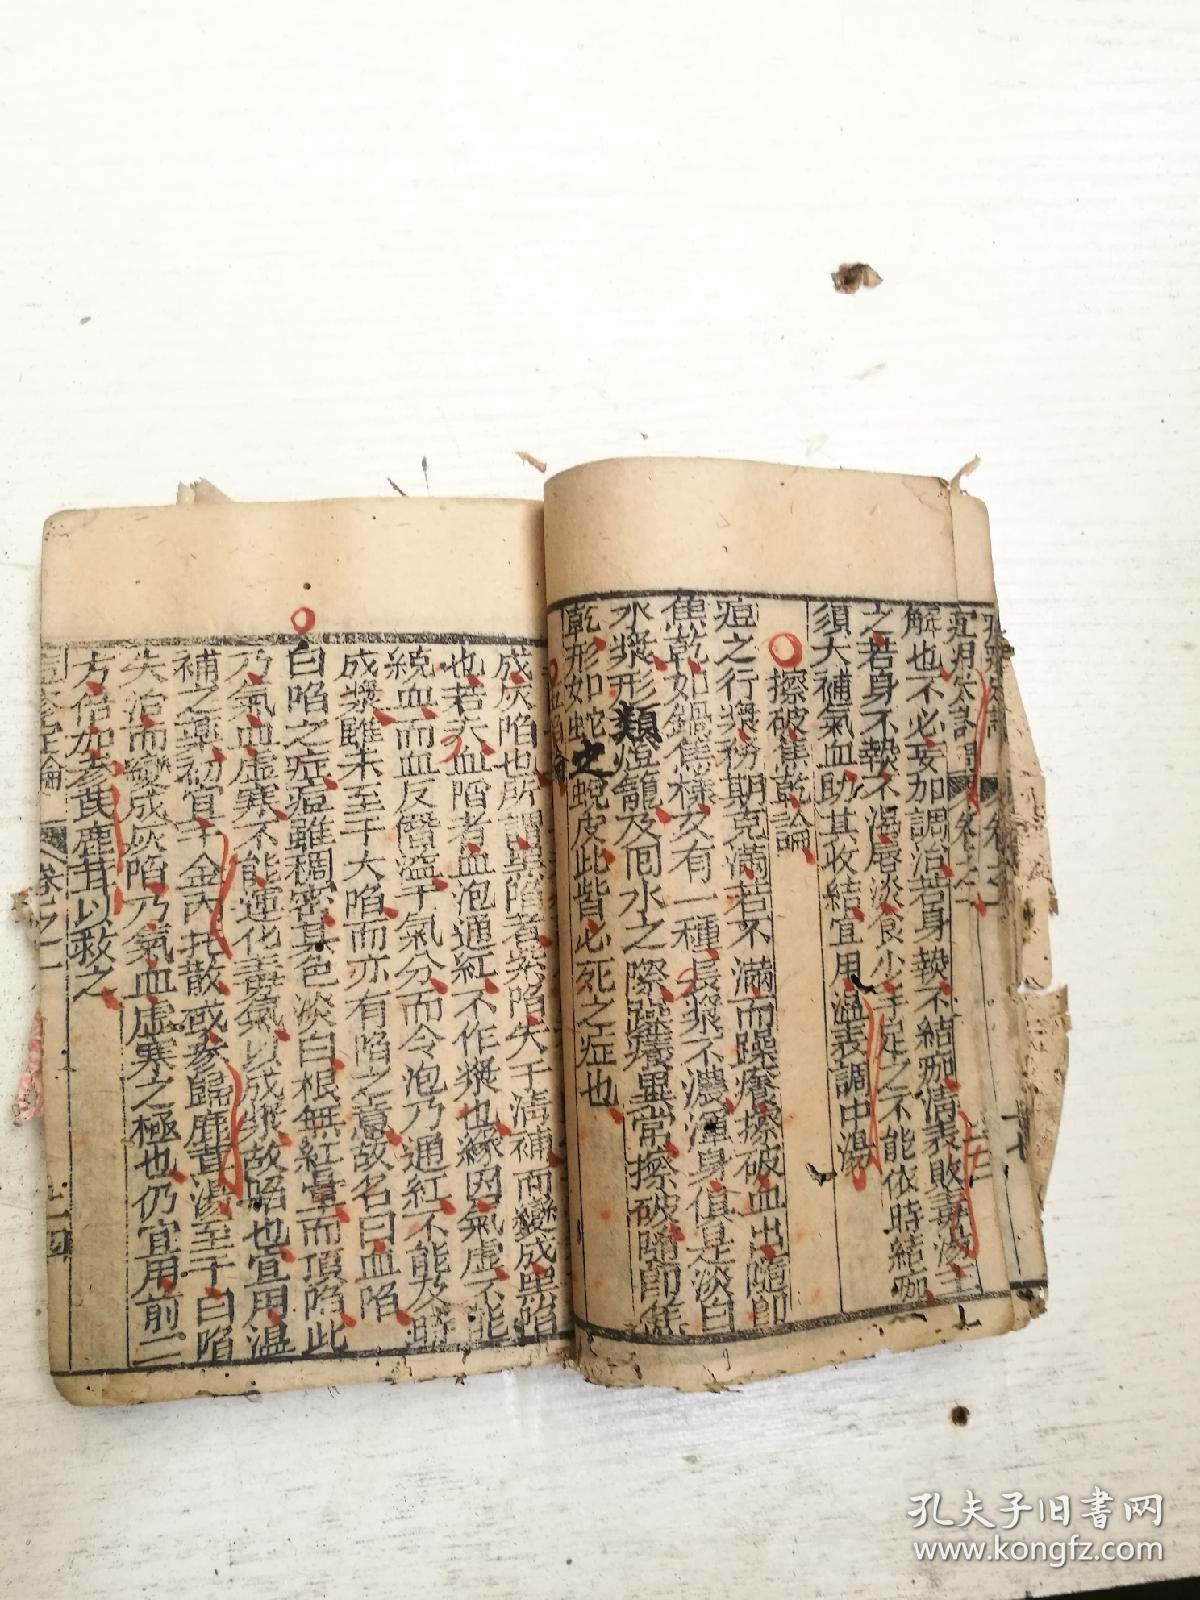 解也不必妄加調治若身熱不結痂清表敗毒湯主
之若身不熱不渴唇淡食少手足之不能依時結痂
須大補氣血助其收結宜用溫表調中湯
擦破焦乾論
痘之行漿務期克滿若不滿而躁癢擦破血出隨即
焦乾如鍋焦樣又有一種長漿不濃渾身俱是淡白
水漿形類燈籠及囘水之際躁癢異常擦破隨即焦
乾形如蛇之蛻皮此皆必死之症也
成灰陷也所謂黑陷者紫陷失于清補而變成黑陷
也若夫血陷者血泡通紅不作漿也緣因氣虛不能
統血而血反僭溢于氣分而令泡乃通紅不能及時
成漿雖未至于大陷而亦有陷之意故名曰血陷
白陷之症痘雖稠密其色淡白根無紅暈而頂陷此
乃氣血虛寒不能運化毒氣以成漿故陷也宜用溫
補之藥初宜千金內托散或參歸鹿茸湯至于白陷
失治而變成灰陷乃氣血虛寒之極也仍宜用前二
方倍加參芪鹿茸以救之
卷之一
孔夫子旧书网
www.kongfz.com